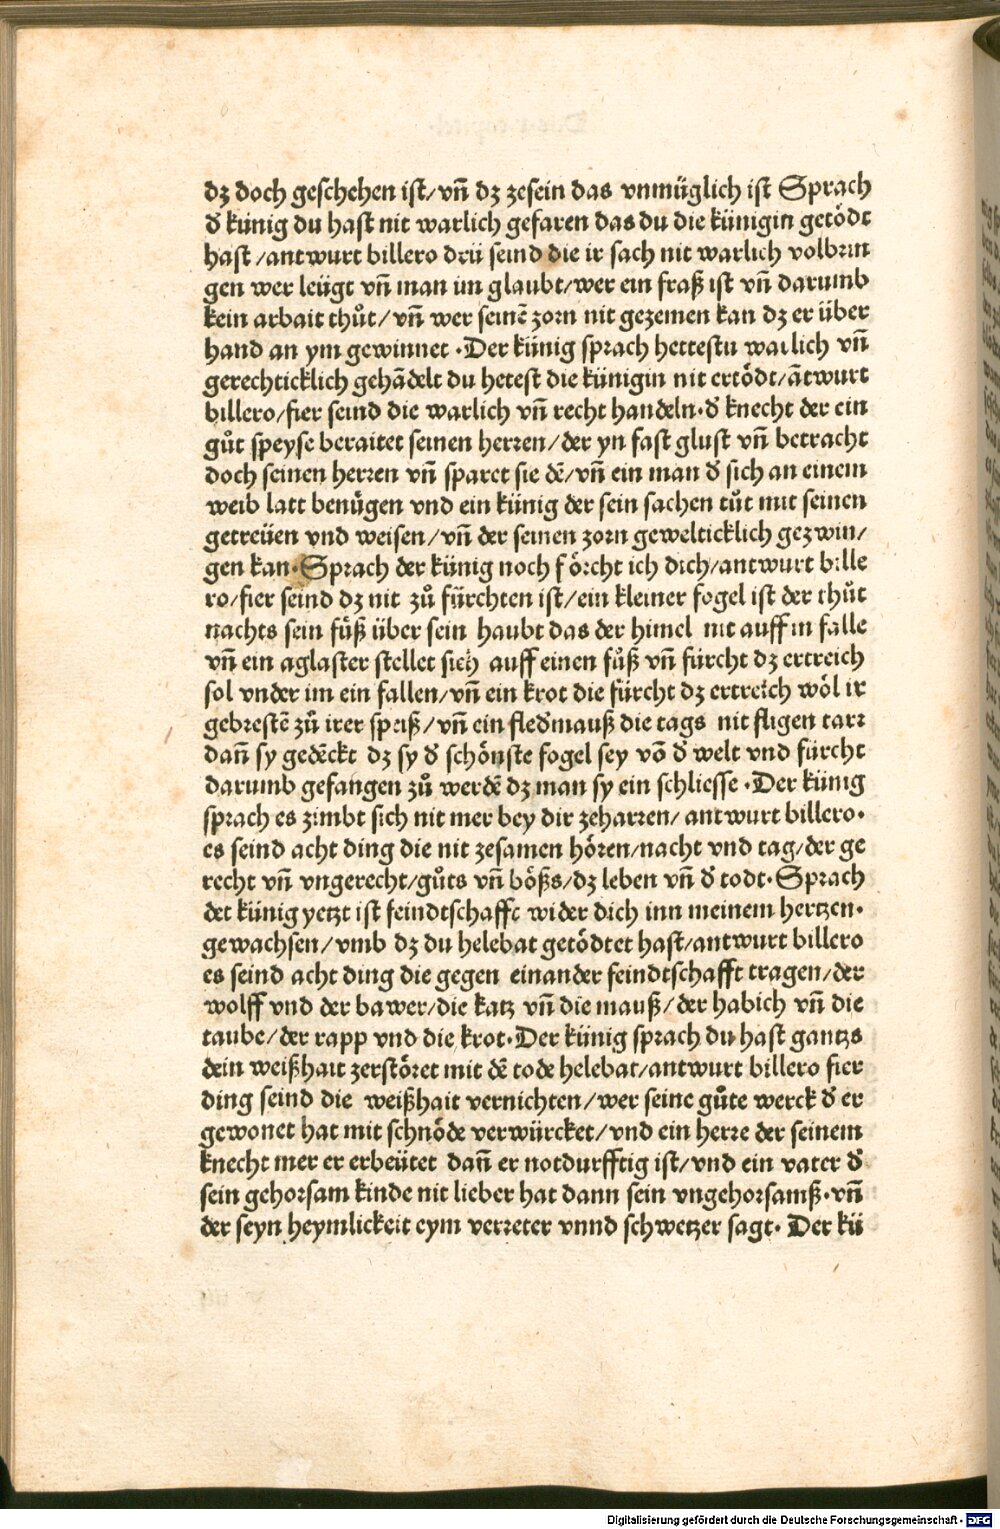 dz doch geschehen ist/vñ dz zesein das vnmüglich ist Sprach
đ künig du hast nit warlich gefaren das du die künigin getödt
hast/antwurt billero drü seind die ir sach nit warlich volbrin
gen wer leügt vñ man im glaubt/wer ein fraß ist vñ darumb
kein arbait thůt/vñ wer seinē zorn nit gezemen kan dz er über
hand an ym gewinnet ·Der künig sprach hettestu warlich vñ
gerechticklich gehādelt du hetest die künigin nit ertödt/ātwurt
billero/fier seind die warlich vñ recht handeln·đ knecht der ein
gůt speyse beraitet seinen herren/der yn fast glust vñ betracht
doch seinen herren vñ sparet sie dē/vñ ein man đ sich an einem
weib latt benügen vnd ein künig der sein sachen tůt mit seinen
getreüen vnd weisen/vñ der seinen zorn gewelticklich gezwin/
gen kan·Sprach der künig noch förcht ich dich/antwurt bille
ro/fier seind dz nit zů fürchten ist/ein kleiner fogel ist der thůt
nachts sein füß über sein haubt das der himel nit auff in falle
vñ ein aglaster stellet sich auff einen fůß vñ fürcht dz ertreich
sol vnder im ein fallen/vñ ein krot die fürcht dz ertreich wöl ir
gebrestē zů irer speiß/vñ ein fleđmauß die tags nit fligen tarr
dañ sy gedēckt dz sy đ schönste fogel sey vō đ welt vnd fürcht
darumb gefangen zů werdē dz man sy ein schliesse ·Der künig
sprach es zimbt sich nit mer bey dir zeharren/ antwurt billero·
es seind acht ding die nit zesamen hören/nacht vnd tag/der ge
recht vñ vngerecht/gůts vñ bößs/dz leben vñ đ todt·Sprach
det künig yetzt ist feindtschafft wider dich inn meinem hertzen·
gewachsen/vmb dz du helebat getödtet hast/antwurt billero
es seind acht ding die gegen einander feindtschafft tragen/der
wolff vnd der bawer/die katz vñ die mauß/der habich vñ die
taube/der rapp vnd die krot·Der künig sprach du hast gantzs
dein weißhait zerstöret mit dē tode helebat/antwurt billero fier
ding seind die weißhait vernichten/wer seine gůte werck đ er
gewonet hat mit schnöde verwürcket/vnd ein herre der seinem
knecht mer er erbeütet dañ er notdurfftig ist/vnd ein vater đ
sein gehorsam kinde nit lieber hat dann sein vngehorsamß·vñ
der seyn heymlickeit eym verreter vnnd schwetzer sagt· Der kü
Digitalisierung gefördert durch die Deutsche Forschungsgemeinschaft - DFG